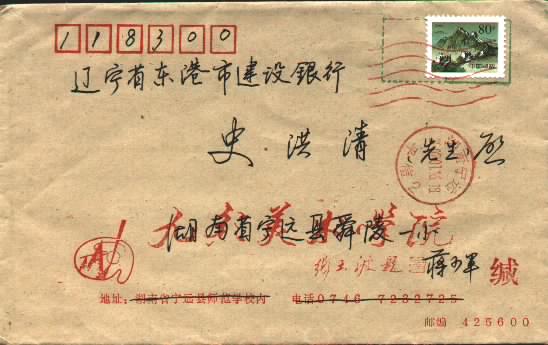 118300
80分
辽宁省东港市建设銀行
史洪清 先生 啟
湖南省宁远县舜陵一
蒋 军 缄
地址：湖南省宁远县师范学校内 电话0746 7232725
邮编 425600